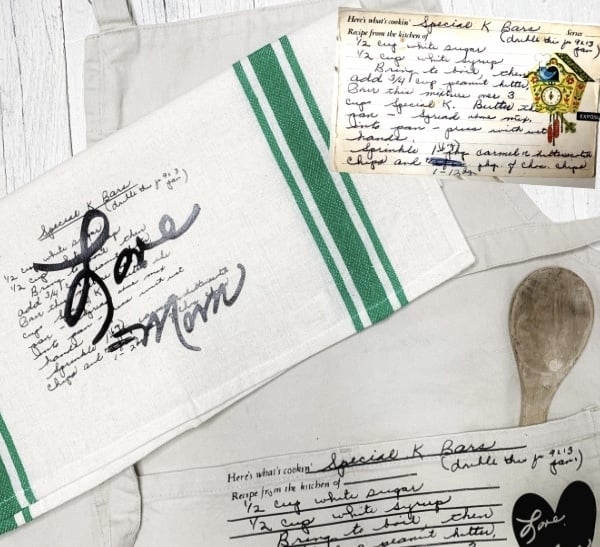 Here's what's cookin' Special K Bars
Recipe from the kitchen of (double this for 9x13 pan.)
Serves
1/2 cup white sugar
1/2 cup white syrup
Bring to boil, then
add 3/4 cup peanut butter.
Pour this mixture over 3
cups Special K. Butter
pan - spread some mix.
into pan - press with wet
hands.
Sprinkle 1 pkg carmel or butterscotch
chips and pkg. of choc. chips
EXPOSU
Special K Bars
(double this for 9x13 pan)
1/2 cup white sugar
1/2 cup white syrup
Bring to boil, then
add 3/4
Pour this
cups
pan - mix
into pan - with wet
hands
Sprinkle
chips and
Love
-Mom
Here's what's cookin' Special K Bars
Recipe from the kitchen of (double this for 9x13 pan.)
1/2 cup white sugar
1/2 cup white syrup
Bring to boil, then
peanut butter.
Love,